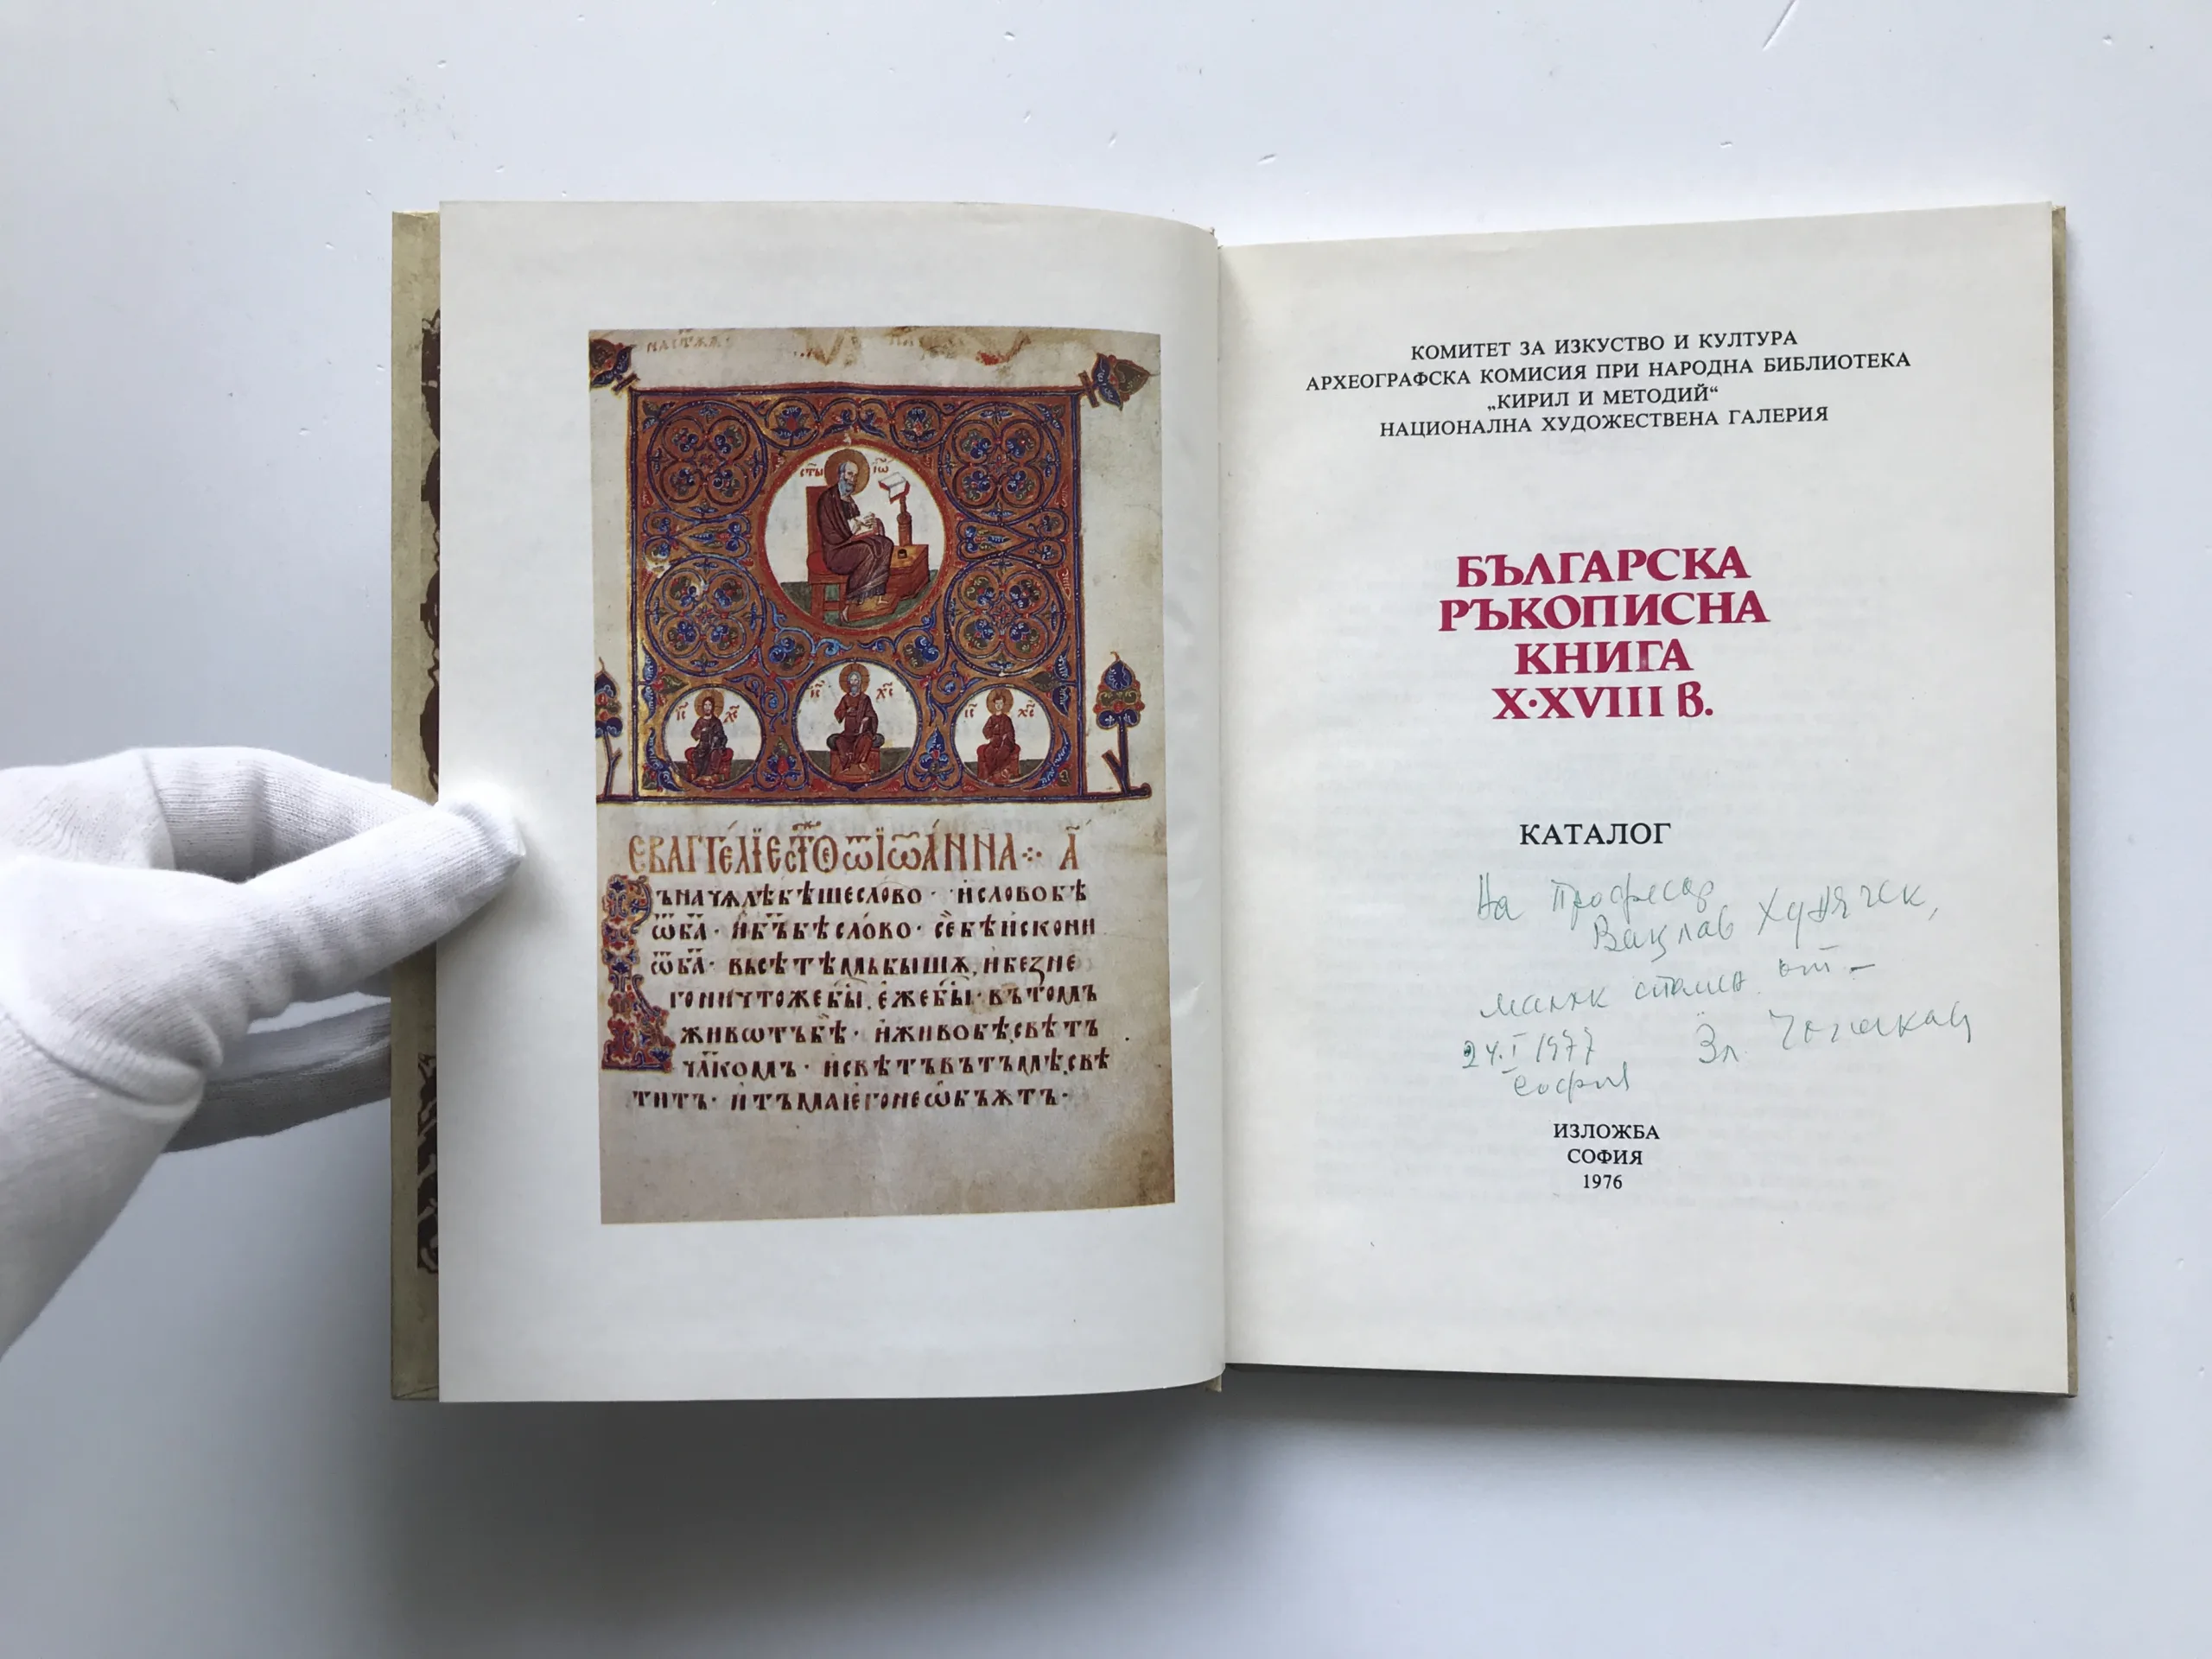 СТЫ ІѠ
ІС ХС ІС ХС ІС ХС
ЕВАГГЕЛІЕ СТОЕ ѾІѠАННА А
ЪНАЧѦЛѢБѢШЕСЛОВО · ИСЛОВОБѢ
ѾБА · ИБЪБѢСЛОВО · СЕБѢИСКОНИ
ѾБА · ВЬСѢТѢМЬБЫШѦ, ИБЕЗНЕ
ГОНИЧТОЖЕБЫ, ЕЖЕБЫ · ВЪТОМЪ
ЖИВѠТЪБѢ · ИЖИВОБѢ, СВѢТЪ
ЧЛКОМЪ · ИСВѢТЪВЪТЪМѢ, СВѢ
ТИТЪ · ИТЪМАІЕГОНЕѠБЪѪТЪ ·
КОМИТЕТ ЗА ИЗКУСТВО И КУЛТУРА
АРХЕОГРАФСКА КОМИСИЯ ПРИ НАРОДНА БИБЛИОТЕКА
„КИРИЛ И МЕТОДИЙ“
НАЦИОНАЛНА ХУДОЖЕСТВЕНА ГАЛЕРИЯ
БЪЛГАРСКА
РЪКОПИСНА
КНИГА
X·XVIII В.
КАТАЛОГ
На Професор
Вацлав Хунячек,
малък спомен от –
24.I 1977 Зл.
София
ИЗЛОЖБА
СОФИЯ
1976